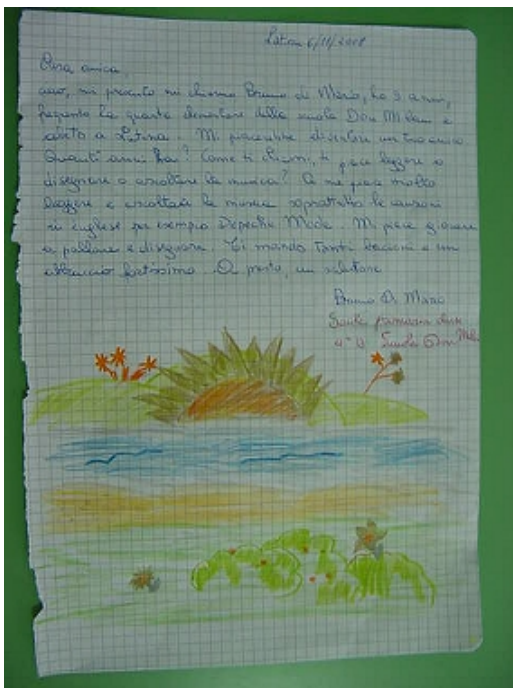 Latina 6/11/2008
Cara amica,
ciao, mi presento mi chiamo Bruno di Mario, ho 9 anni,
frequento la quarta elementare della scuola Don Milani e
abito a Latina. Mi piacerebbe diventare un tuo amico.
Quanti anni hai? Come ti chiami, ti piace leggere o
disegnare o ascoltare la musica? A me piace molto
leggere e ascoltare la musica soprattutto le canzoni
in inglese per esempio Depeche Mode. Mi piace giocare
a pallone e disegnare. Ti mando tanti bacioni e un
abbraccio fortissimo. A presto, un salutone
Bruno Di Mario
Scuola primaria classe
4° B Scuola Don Milani